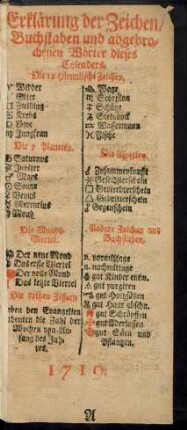 Erklärung der Zeichen/
Buchstaben und abgebro-
chenen Wörter dieses
Calenders.
Die 12 Himmlische Zeichen.
♈ Widder
♉ Stier
♊ Zwilling
♋ Krebs
♌ Löwe
♍ Jungfrau
Die 7 Planeten.
♄ Saturnus
♃ Jupiter
♂ Mars
☉ Sonne
♀ Venus
☿ Mercurius
☽ Mond
Die Monds-
Viertel.
Der neue Mond
Das erste Viertel
Der volle Mond
Das letzte Viertel
Die rothen Ziffern
neben den Evangelien
bedeuten die Zahl der
Wochen vom An-
fang des Jah-
res.
♎ Wage
♏ Scorpion
♐ Schütz
♑ Steinbock
♒ Wassermann
♓ Fische
Die Aspecten.
☌ Zusammenkunfft
⚹ Gesechsterschein
□ Gevierdterschein
△ Gedritterschein
☍ Gegenschein
Andere Zeichen und
Buchstaben.
v. vormittags
n. nachmittags
gut Kinder entw.
gut purgiren
gut Holzfällen
gut Haar abschn.
gut Schröpffen
gut Aderlassen
gut Säen und
Pflantzen.
1710.
A